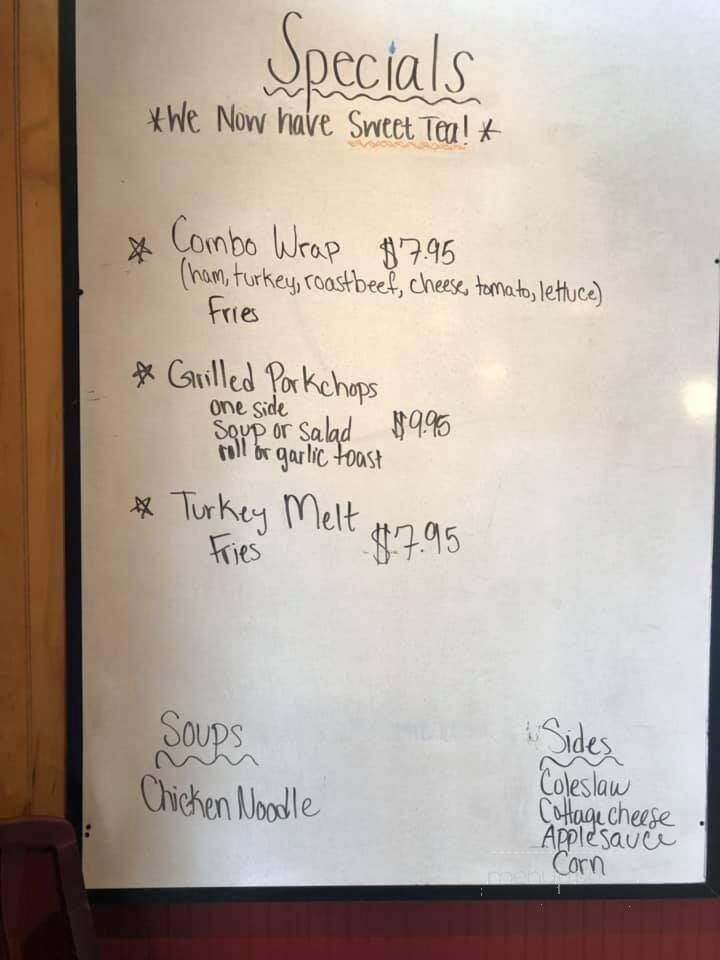 Specials
*We Now have Sweet Tea! *
* Combo Wrap $7.95
(ham, turkey, roastbeef, cheese, tomato, lettuce)
Fries
* Grilled Porkchops
one side
Soup or Salad $9.95
roll or garlic toast
* Turkey Melt
Fries $7.95
Soups
Chicken Noodle
Sides
Coleslaw
Cottage cheese
Applesauce
Corn